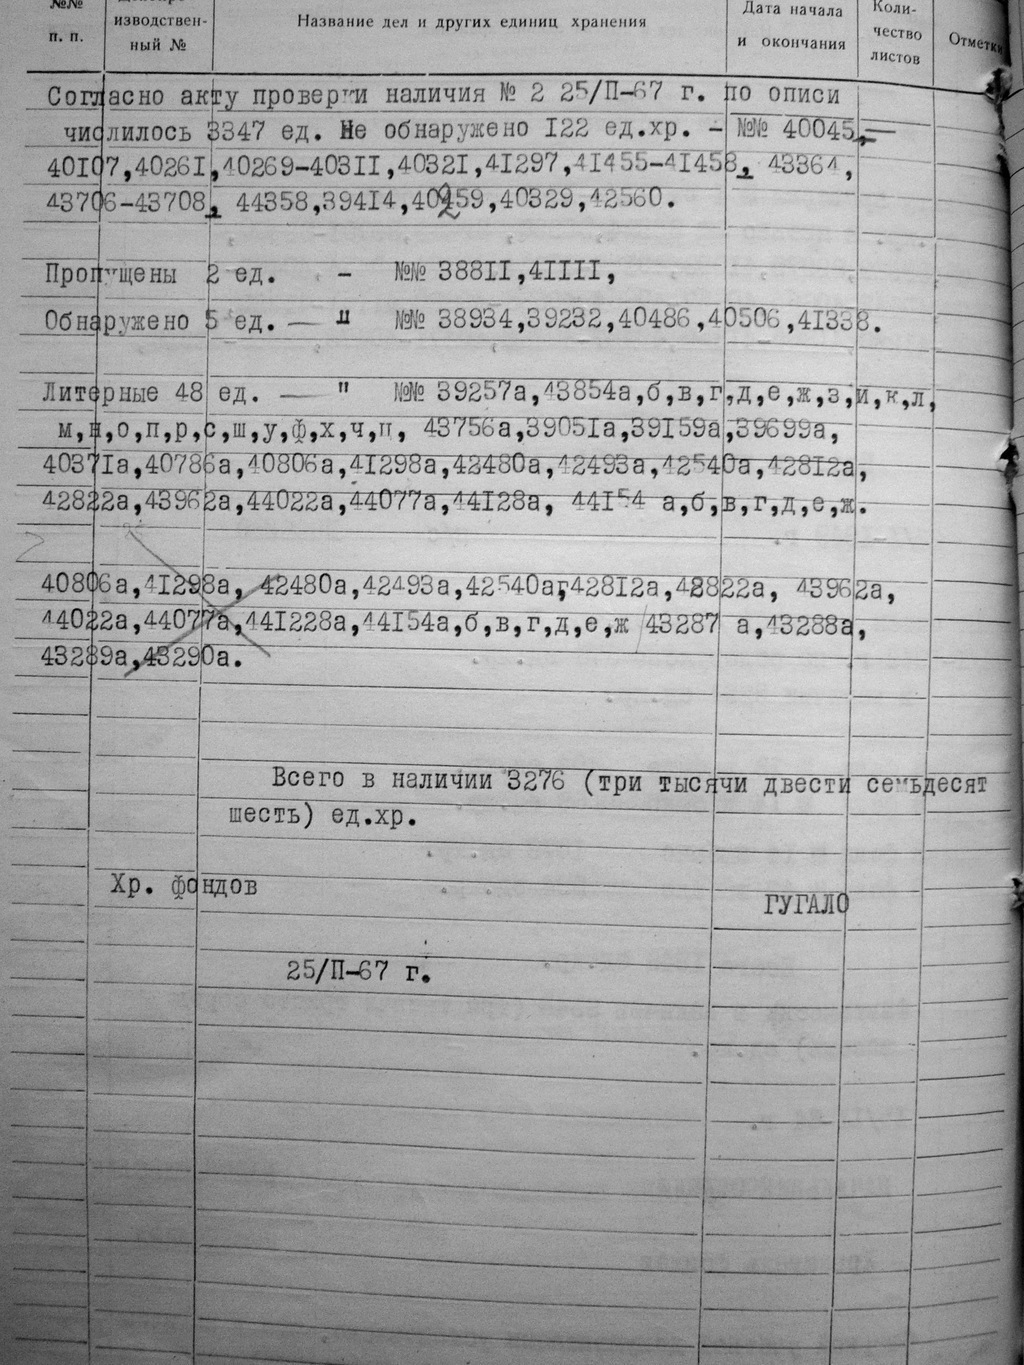 №№
п. п.
изводствен-
ный №
Название дел и других единиц хранения
Дата начала
и окончания
Коли-
чество
листов
Отметки
Согласно акту проверки наличия № 2 25/П-67 г. по описи
числилось 3347 ед. Не обнаружено I22 ед.хр. - №№ 40045,-
40I07,4026I,40269-403II,4032I,4I297,4I455-4I458, 43364,
43706-43708, 44358,394I4,40259,40329,42560.
Пропущены 2 ед. - №№ 388II,4IIII,
Обнаружено 5 ед. — " №№ 38934,39232,40486,40506,4I338.
Литерные 48 ед. — " №№ 39257а,43854а,б,в,г,д,е,ж,з,и,к,л,
м,н,о,п,р,с,ш,у,ф,х,ч,ц, 43756а,3905Iа,39I59а,39699а,
4037Iа,40786а,40806а,4I298а,42480а,42493а,42540а,428I2а,
42822а,43962а,44022а,44077а,44I28а, 44I54 а,б,в,г,д,е,ж.
40806а,4I298а, 42480а,42493а,42540а,428I2а,42822а, 43962а,
44022а,44077а,44I228а,44I54а,б,в,г,д,е,ж 43287 а,43288а,
43289а,43290а.
Всего в наличии 3276 (три тысячи двести семьдесят
шесть) ед.хр.
Хр. фондов
ГУГАЛО
25/П-67 г.